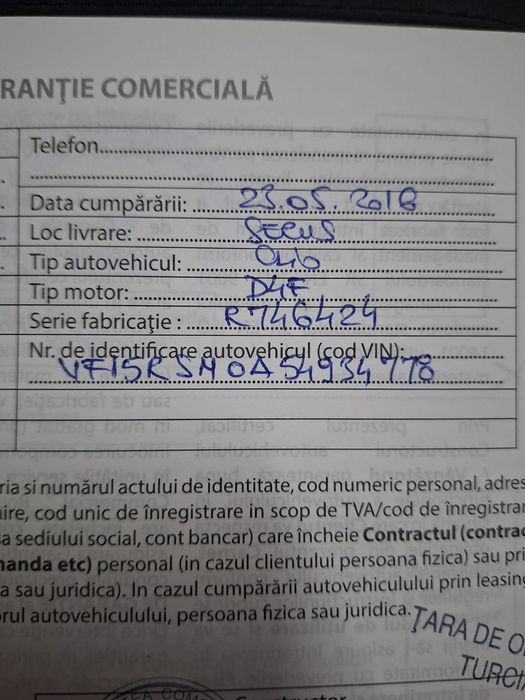 RANŢIE COMERCIALĂ
Telefon
Data cumpărării: 23.05.2016
Loc livrare:
Tip autovehicul: Clio
Tip motor: D4F
Serie fabricaţie : R746424
Nr. de identificare autovehicul (cod VIN):
VF15RSM0A54934778
ria si numărul actului de identitate, cod numeric personal, adres
ire, cod unic de înregistrare in scop de TVA/cod de înregistrar
a sediului social, cont bancar) care încheie Contractul (contrac
manda etc) personal (in cazul clientului persoana fizica) sau pri
a sau juridica). In cazul cumpărării autovehiculului prin leasing
orul autovehiculului, persoana fizica sau juridica.
ŢARA DE O
TURCI